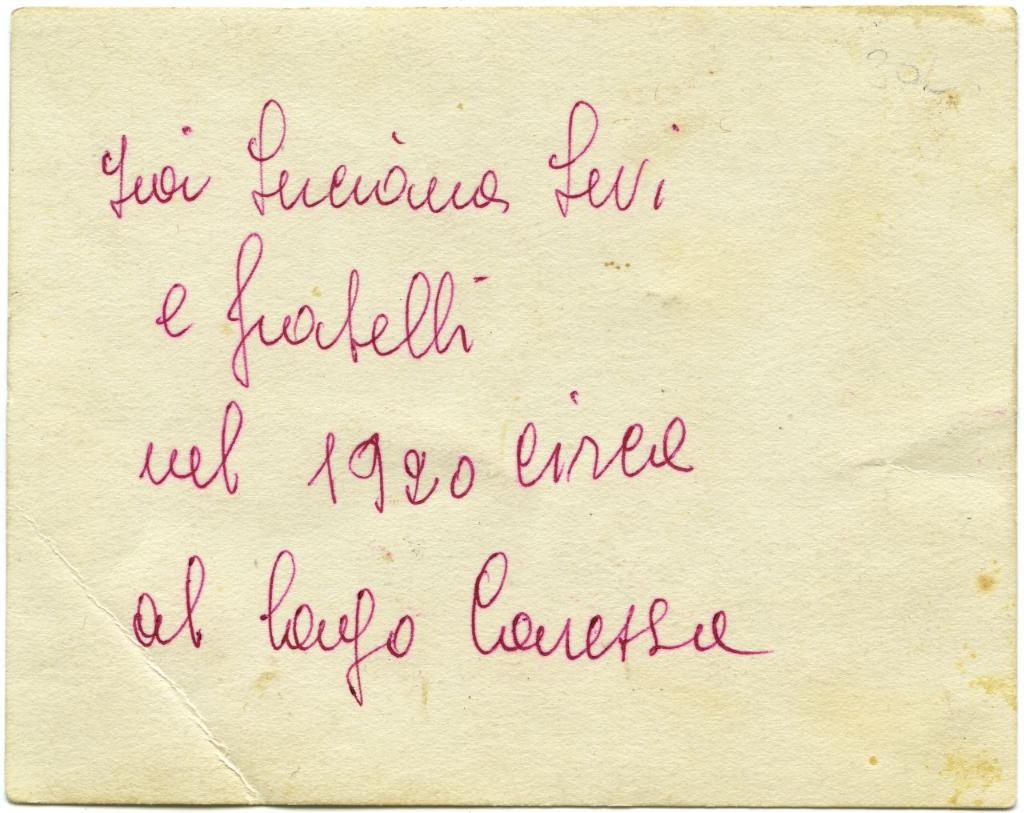 Luciana Levi
e fratelli
nel 1920 circa
al lago Carezza